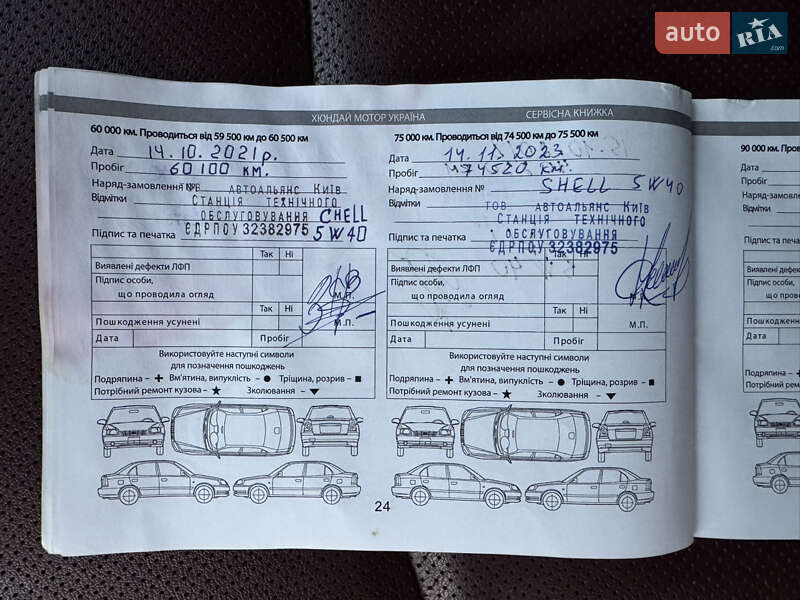 auto RIA .com
ХЮНДАЙ МОТОР УКРАЇНА
СЕРВІСНА КНИЖКА
60 000 км. Проводиться від 59 500 км до 60 500 км
Дата 14.10.2021р.
Пробіг 60 100 км.
Наряд-замовлення № АВТОАЛЬЯНС КИЇВ
Відмітки СТАНЦІЯ ТЕХНІЧНОГО
ОБСЛУГОВУВАННЯ CHELL
Підпис та печатка ЄДРПОУ 32382975 5W40
Так Ні
Виявлені дефекти ЛФП
Підпис особи,
що проводила огляд М.П.
Так Ні
Пошкодження усунені М.П.
Дата Пробіг
Використовуйте наступні символи
для позначення пошкоджень
Подряпина – + Вм'ятина, випуклість – ● Тріщина, розрив – ■
Потрібний ремонт кузова – ★ Зколювання – ▼
75 000 км. Проводиться від 74 500 км до 75 500 км
Дата 14.11.2023
Пробіг 74520 км.
Наряд-замовлення № SHELL 5W40
Відмітки ТОВ АВТОАЛЬЯНС КИЇВ
СТАНЦІЯ ТЕХНІЧНОГО
ОБСЛУГОВУВАННЯ
Підпис та печатка ЄДРПОУ 32382975
Так Ні
Виявлені дефекти ЛФП
Підпис особи,
що проводила огляд М.П.
Так Ні
Пошкодження усунені М.П.
Дата Пробіг
Використовуйте наступні символи
для позначення пошкоджень
Подряпина – + Вм'ятина, випуклість – ● Тріщина, розрив – ■
Потрібний ремонт кузова – ★ Зколювання – ▼
24
90 000 км. П
Дата
Пробіг
Наряд-замо
Відмітки
Підпис та п
Виявлені де
Підпис особ
що пров
Пошкодже
Дата
Подряпина
Потрібний